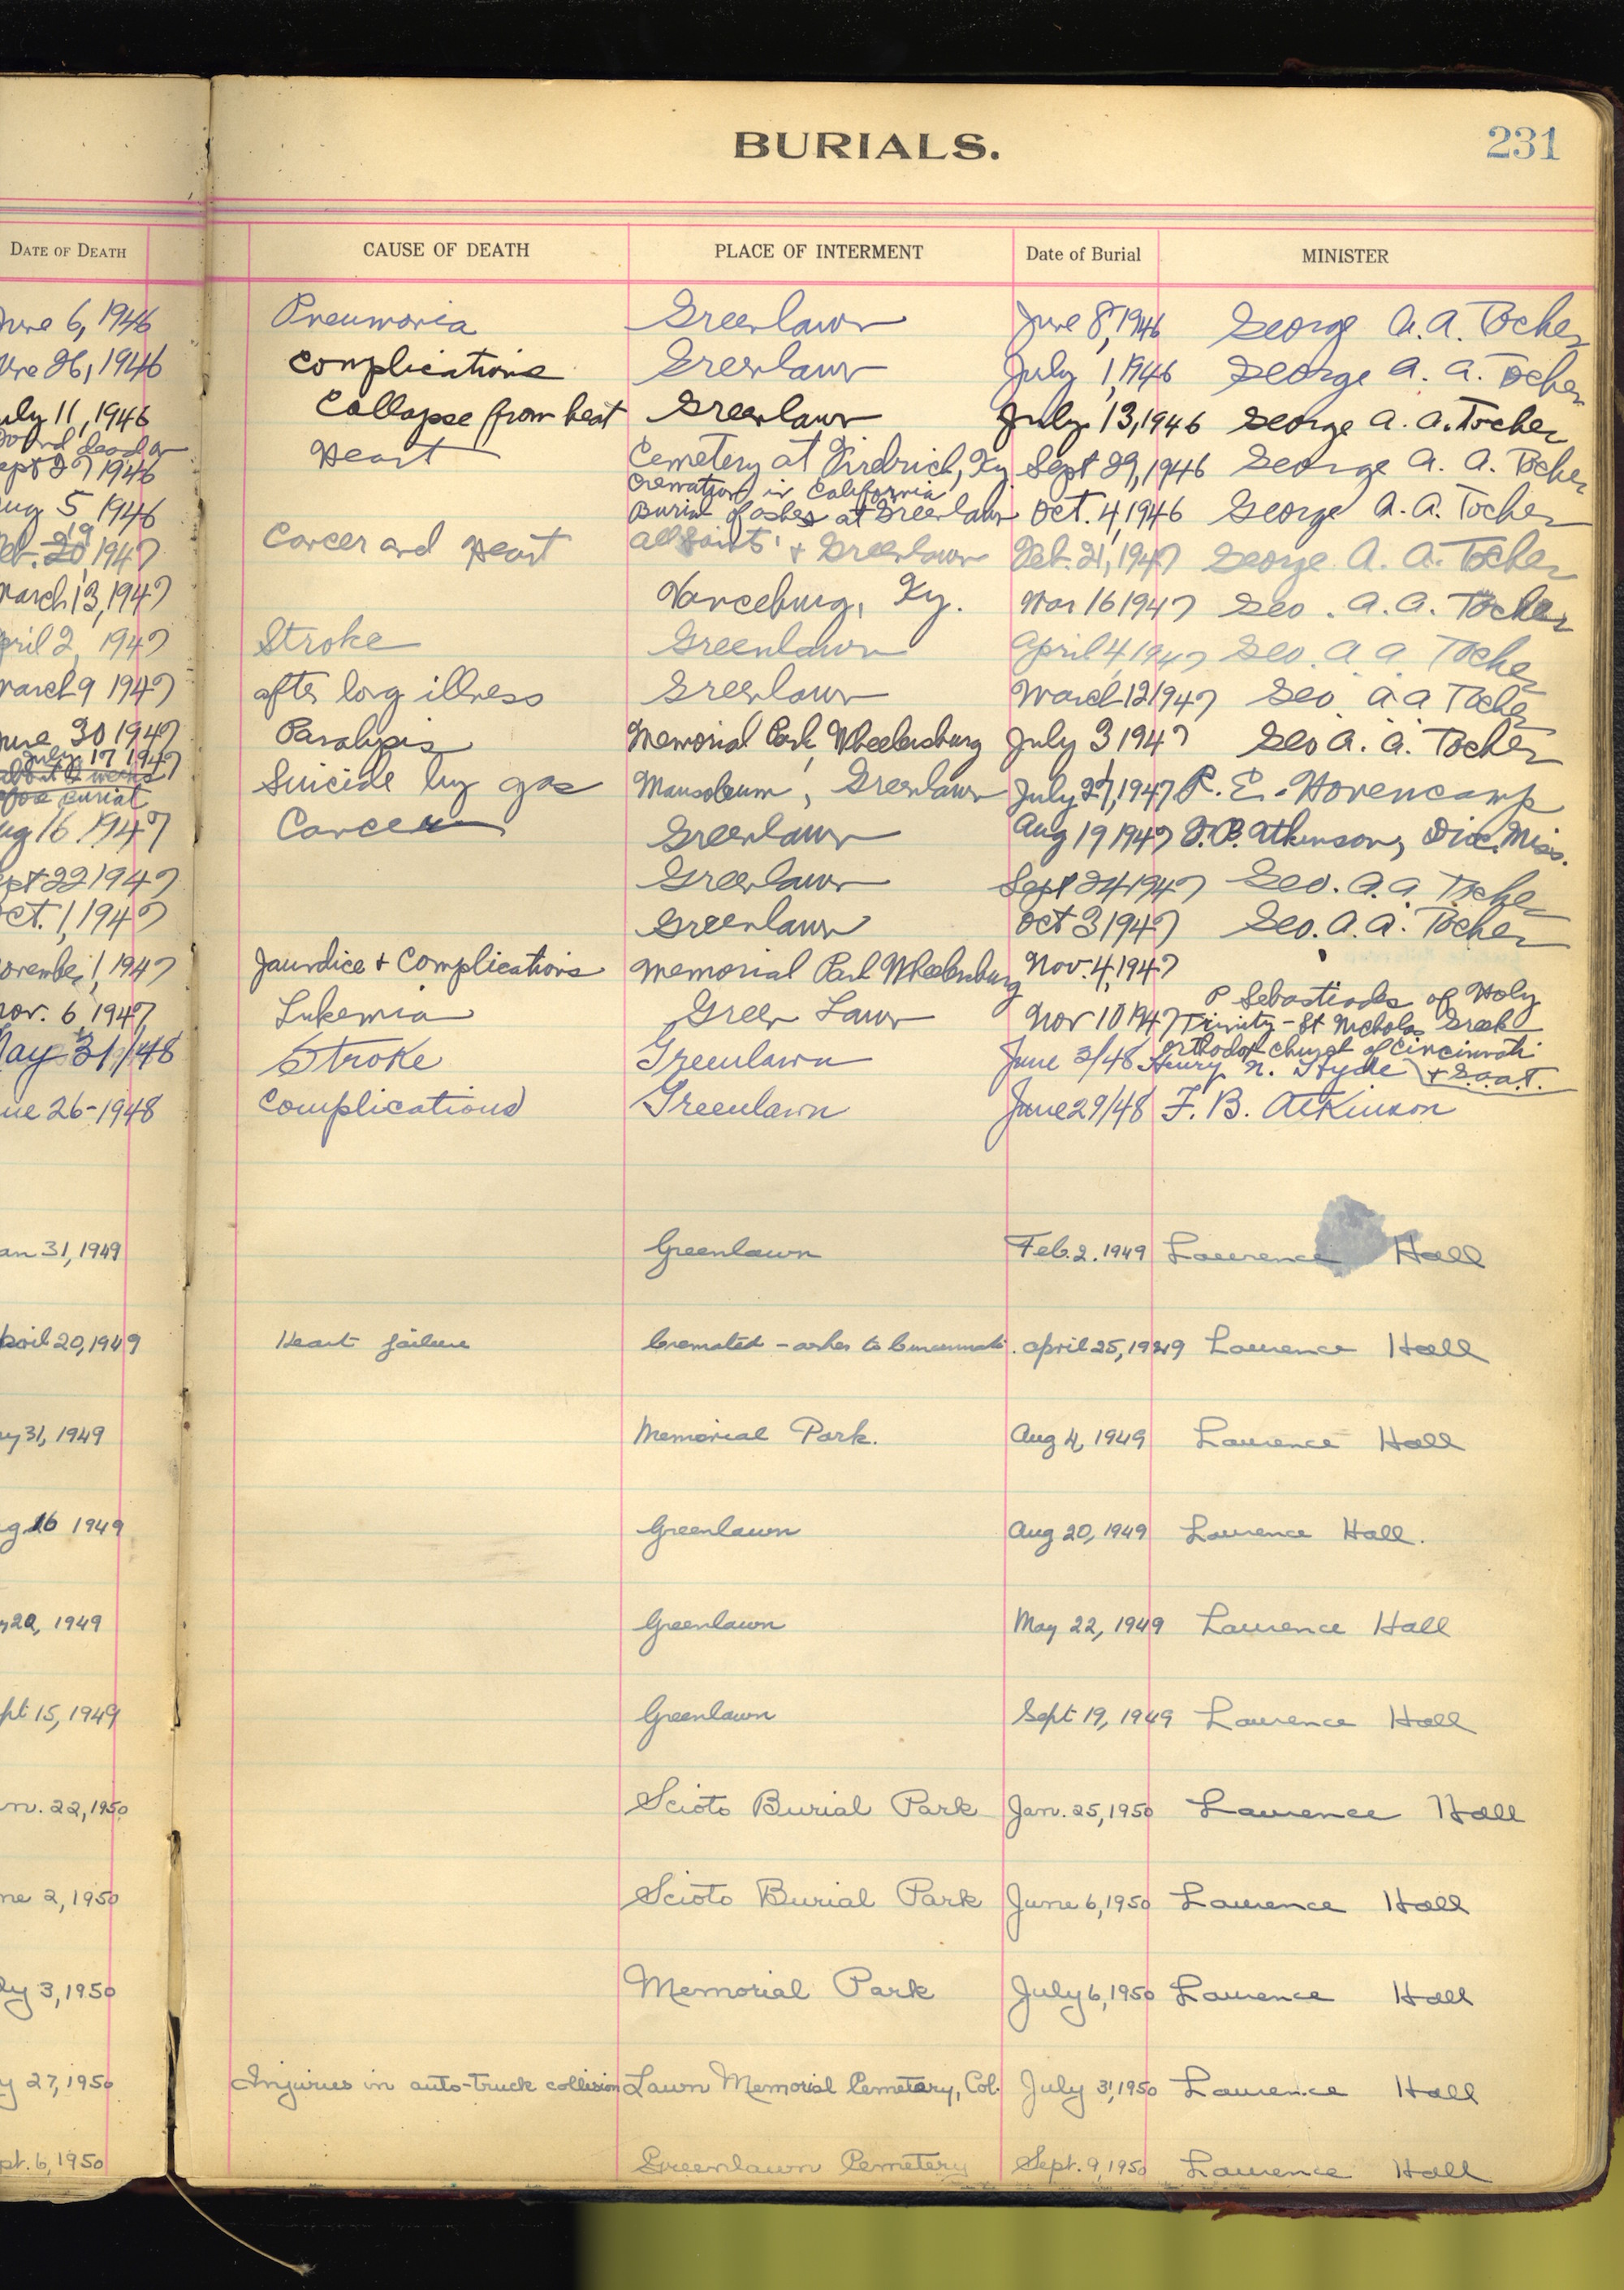 BURIALS. 231
DATE OF DEATH CAUSE OF DEATH PLACE OF INTERMENT Date of Burial MINISTER
une 6, 1946 Pneumonia Greenlawn June 8, 1946 George A. A. Tocher
ne 26, 1946 Complications Greenlawn July 1, 1946 George A. A. Tocher
uly 11, 1946 Collapse from heat Greenlawn July 13, 1946 George A. A. Tocher
ound dead on
ept 27 1946 Heart Cemetery at Ky Sept 29, 1946 George A. A. Tocher
Cremation in California
ug 5 1946 Burial of ashes at Greenlawn Oct. 4, 1946 George A. A. Tocher
19
eb. 20, 1947 Cancer and Heart All Saints' + Greenlawn Feb. 21, 1947 George A. A. Tocher
March 13, 1947 Vanceburg, Ky. Mar 16 1947 Geo. A. A. Tocher
pril 2, 1947 Stroke Greenlawn April 4, 1947 Geo. A A Tocher
March 9 1947 after long illness Greenlawn March 12 1947 Geo. A A Tocher
une 30 1947 Paralysis Memorial Park, Wheelersburg July 3 1947 Geo A. A. Tocher
July 17 1947
about 2 weeks
fore burial Suicide by gas Mausoleum, Greenlawn July 27, 1947 P. E. Hovencamp
ug 16 1947 Cancer Greenlawn Aug 19 1947 F. B. Atkinson, Dioc. Miss.
pt 22 1947 Greenlawn Sept 24 1947 Geo. A. A. Tocher
ct. 1, 1947 Greenlawn Oct 3 1947 Geo. A. A. Tocher
ovember 1, 1947 Jaundice + Complications Memorial Park Wheelersburg Nov. 4, 1947
P Sebastiades of Holy
nov. 6 1947 Lukemia Green Lawn Nov 10 1947 Trinity - St Nicholas Greek
Orthodox church of Cincinnati
May 31/48 Stroke Greenlawn June 3/48 Henry N. Hyde + G.A.A.T.
ne 26-1948 Complications Greenlawn June 29/48 F. B. Atkinson
an 31, 1949 Greenlawn Feb. 2. 1949 Laurence Hall
pril 20, 1949 Heart failure Cremated - ashes to Cincinnati. April 25, 1949 Laurence Hall
y 31, 1949 Memorial Park. Aug 4, 1949 Laurence Hall
g 16 1949 Greenlawn Aug 20, 1949 Laurence Hall.
y 20, 1949 Greenlawn May 22, 1949 Laurence Hall
pt 15, 1949 Greenlawn Sept 19, 1949 Laurence Hall
n. 22, 1950 Scioto Burial Park Jan. 25, 1950 Laurence Hall
ne 2, 1950 Scioto Burial Park June 6, 1950 Laurence Hall
ly 3, 1950 Memorial Park July 6, 1950 Laurence Hall
y 27, 1950 Injuries in auto-truck collision Lawn Memorial Cemetery, Col. July 31, 1950 Laurence Hall
pt. 6, 1950 Greenlawn Cemetery Sept. 9, 1950 Laurence Hall